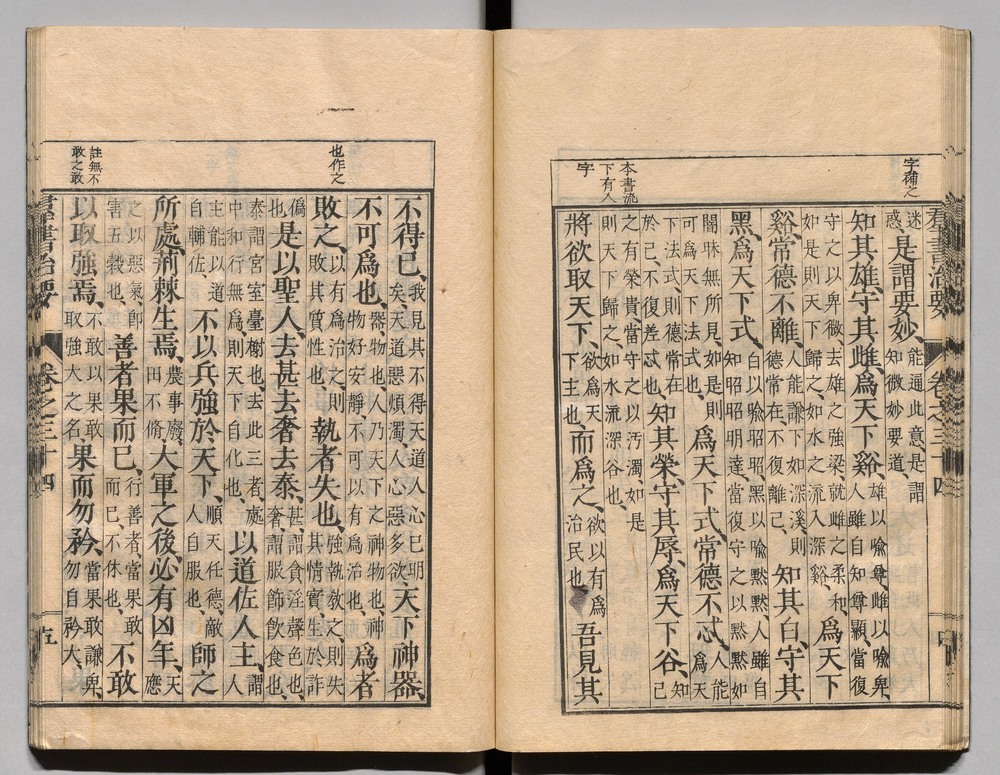 字補之
本書流
下有人
字
羣書治要 卷之三十四 四
迷惑、是謂要妙、能通此意是謂知微妙要道、
知其雄守其雌、爲天下谿、雄以喩尊雌以喩卑、人雖自知尊顯當復
守之以卑微、去雄之強梁、就雌之柔和、如是則天下歸之、如水之流入深谿、爲天下
谿、常德不離、人能謙下如深溪、則德常在、不復離己、知其白、守其
黑、爲天下式、白以喩昭昭、黑以喩默默人雖自知昭昭明達、當復守之以默默如
闇昧無所見、如是則可爲天下法式也、爲天下式、常德不忒、人能爲天
下法式、則德常在於己、不復差忒也、知其榮、守其辱、爲天下谷、知己
之有榮貴、當守之以汚濁、如是則天下歸之、如水流深谷也、
將欲取天下、欲爲天下主也、而爲之、欲以有爲治民也、吾見其
也作之
註無不
敢之敢
不得已、我見其不得天道人心已明矣、天道惡煩濁、人心惡多欲、天下神器、
不可爲也、器、物也、人乃天下之神物也、神物好安靜不可以有爲治也、爲者
敗之、以有爲治之、則敗其質性也、執者失也、強執敎之、則失其情實、生於詐
僞也、是以聖人、去甚去奢去泰、甚、謂貪淫聲色也、奢、謂服飾飲食也、
泰謂宮室臺榭也、去此三者、處中和、行無爲、則天下自化也、以道佐人主、謂人
主能以道自輔佐、不以兵強於天下、順天任德、敵人自服也、師之
所處、荊棘生焉、農事廢、田不脩、大軍之後必有凶年、天應
之以惡氣、卽害五穀也、善者果而已、行善者、當果敢而已、不休也、不敢
以取強焉、不敢以果敢取強大之名、果而勿矜、當果敢謙卑、勿自矜大、
羣書治要 卷之三十四 五